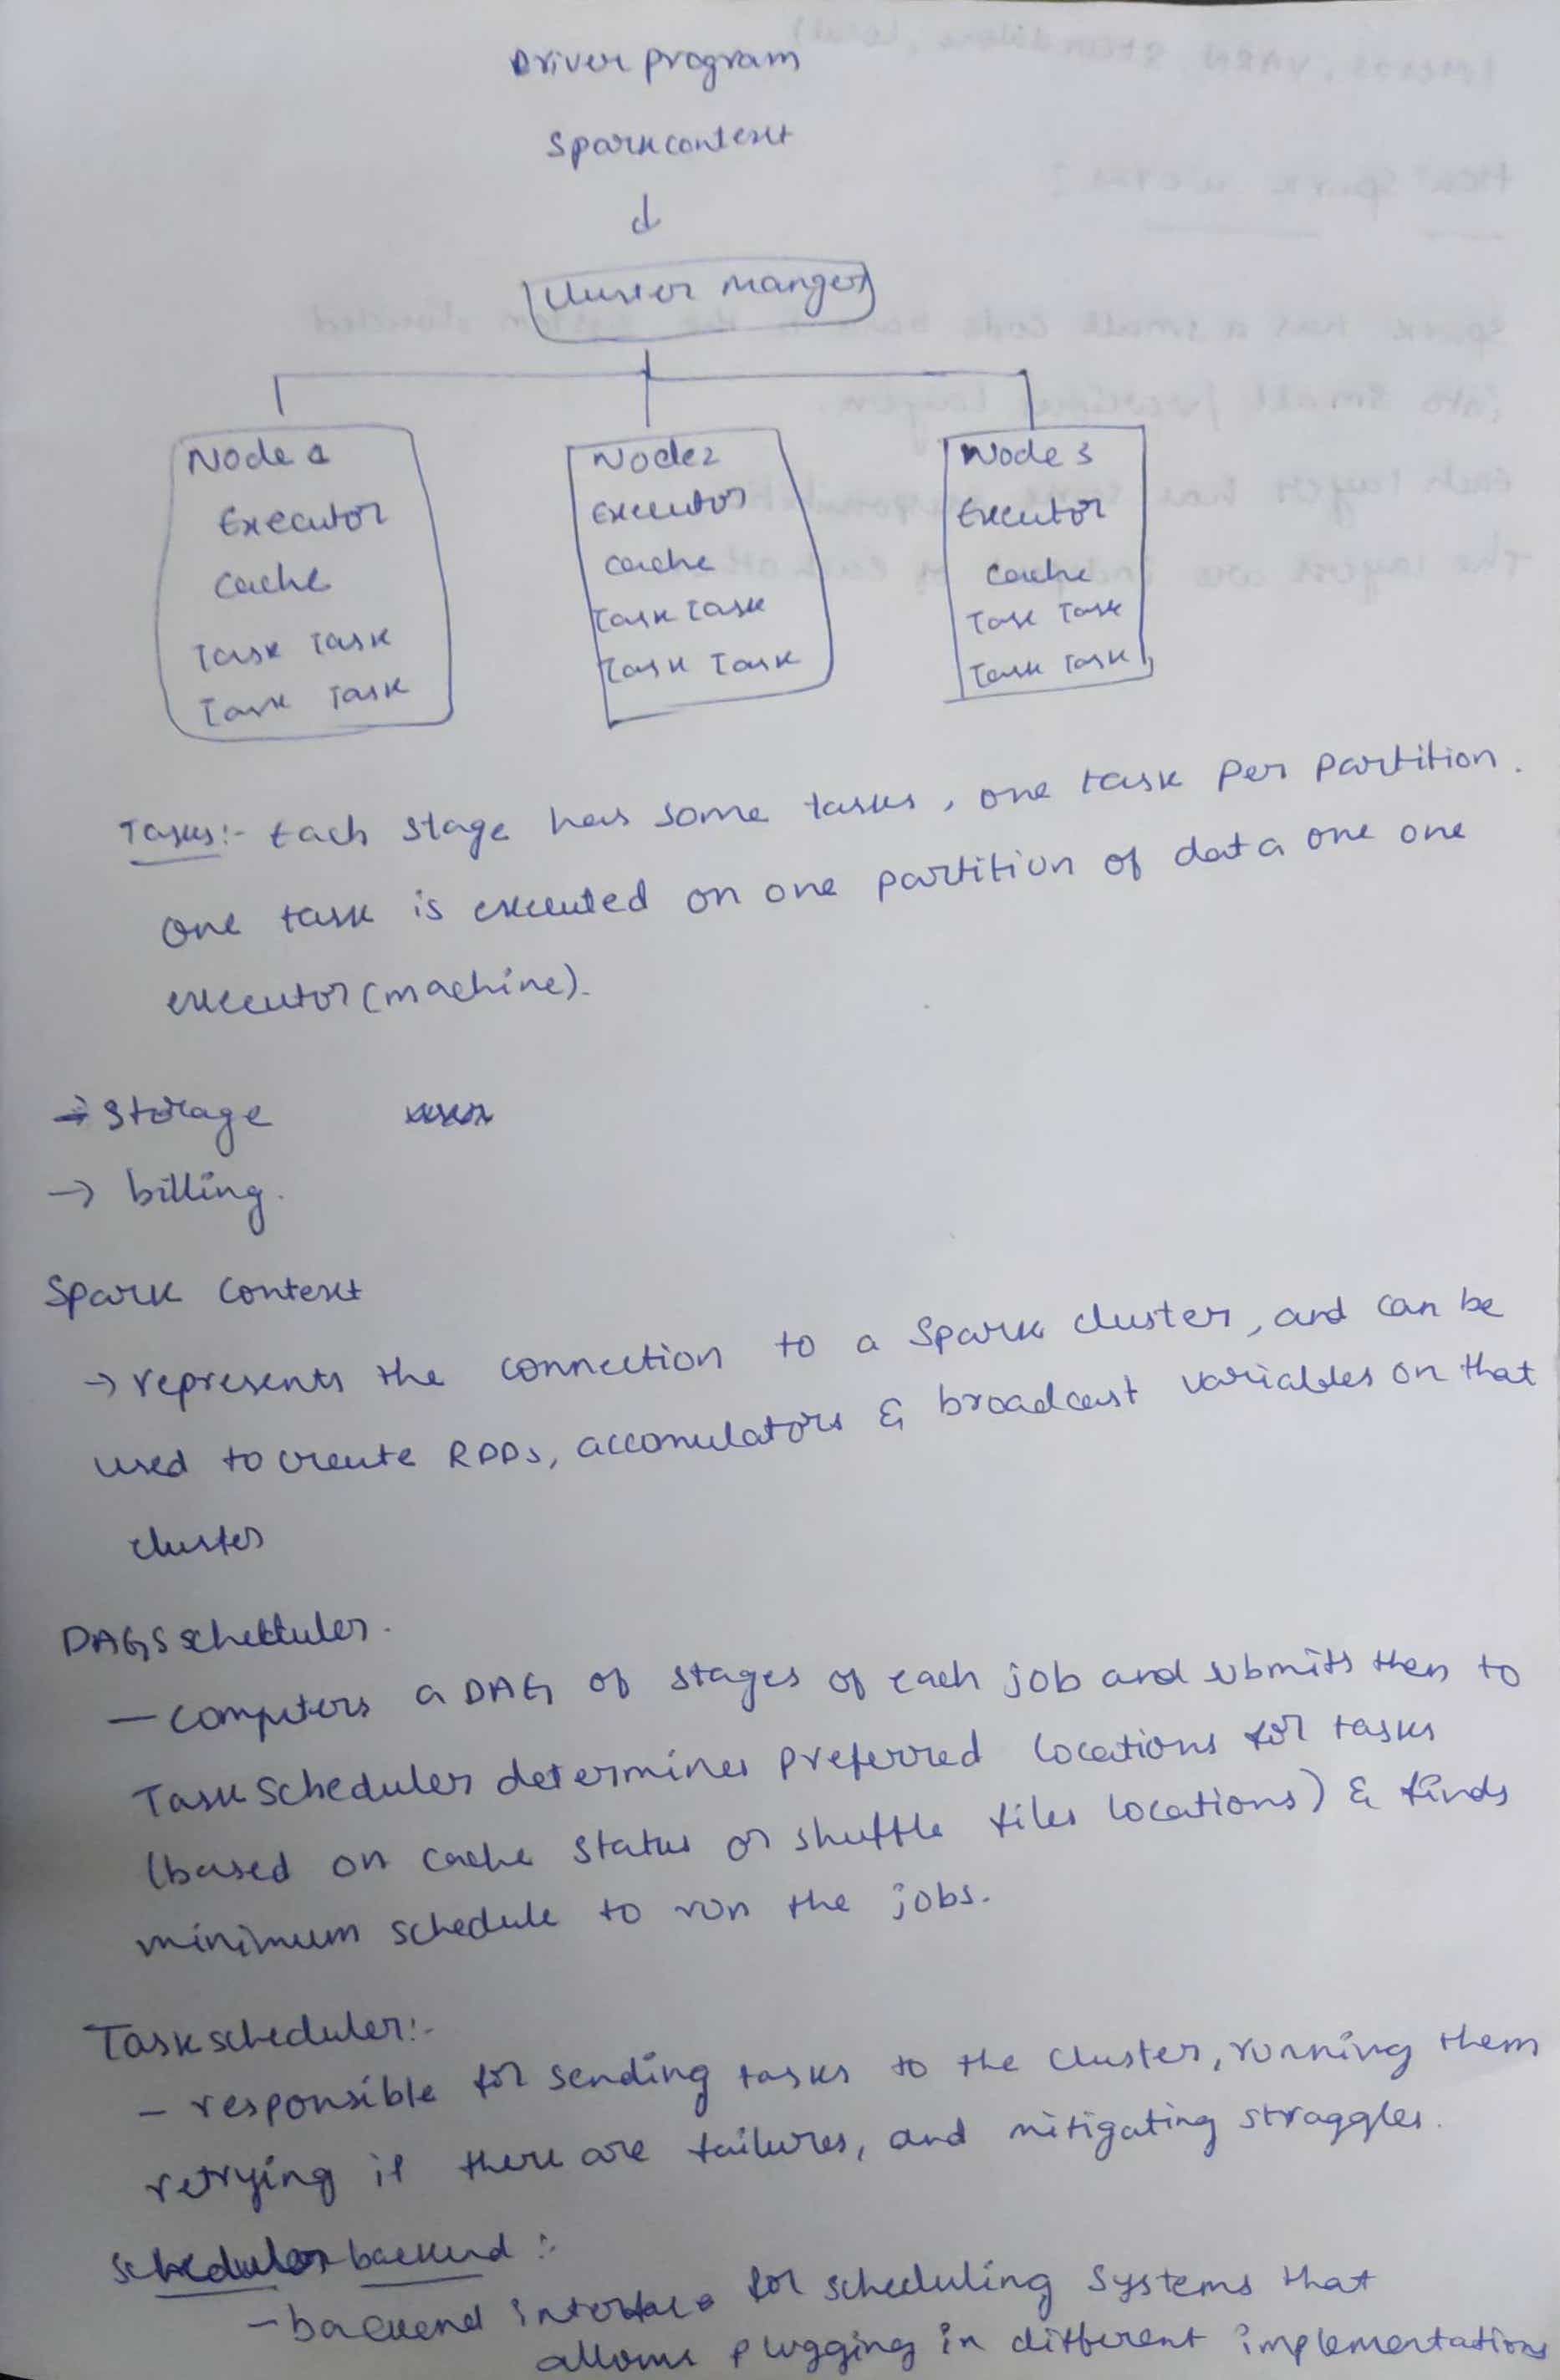 Driver program
Sparkcontext
Cluster manger
Node 1
Executor
Cache
Task Task
Task Task
Node 2
Executor
Cache
Task Task
Task Task
Node 3
Executor
Cache
Task Task
Task Task
Tasks:- Each stage has some tasks, one task per partition.
one task is executed on one partition of data one one
executor (machine).
→ Storage
→ billing.
Spark Context
→ represents the connection to a Spark cluster, and can be
used to create RDDs, accomulators & broadcast variables on that
cluster
DAGSscheduler.
- computers a DAG of stages of each job and submits then to
Task Scheduler determines preferred locations for tasks
(based on cache status or shuffle files locations) & finds
minimum schedule to run the jobs.
Task scheduler:-
- responsible for sending tasks to the cluster, running them
retrying if there are failures, and mitigating straggles.
Scheduler backend :-
- backend interface for scheduling systems that
allows plugging in different implementations